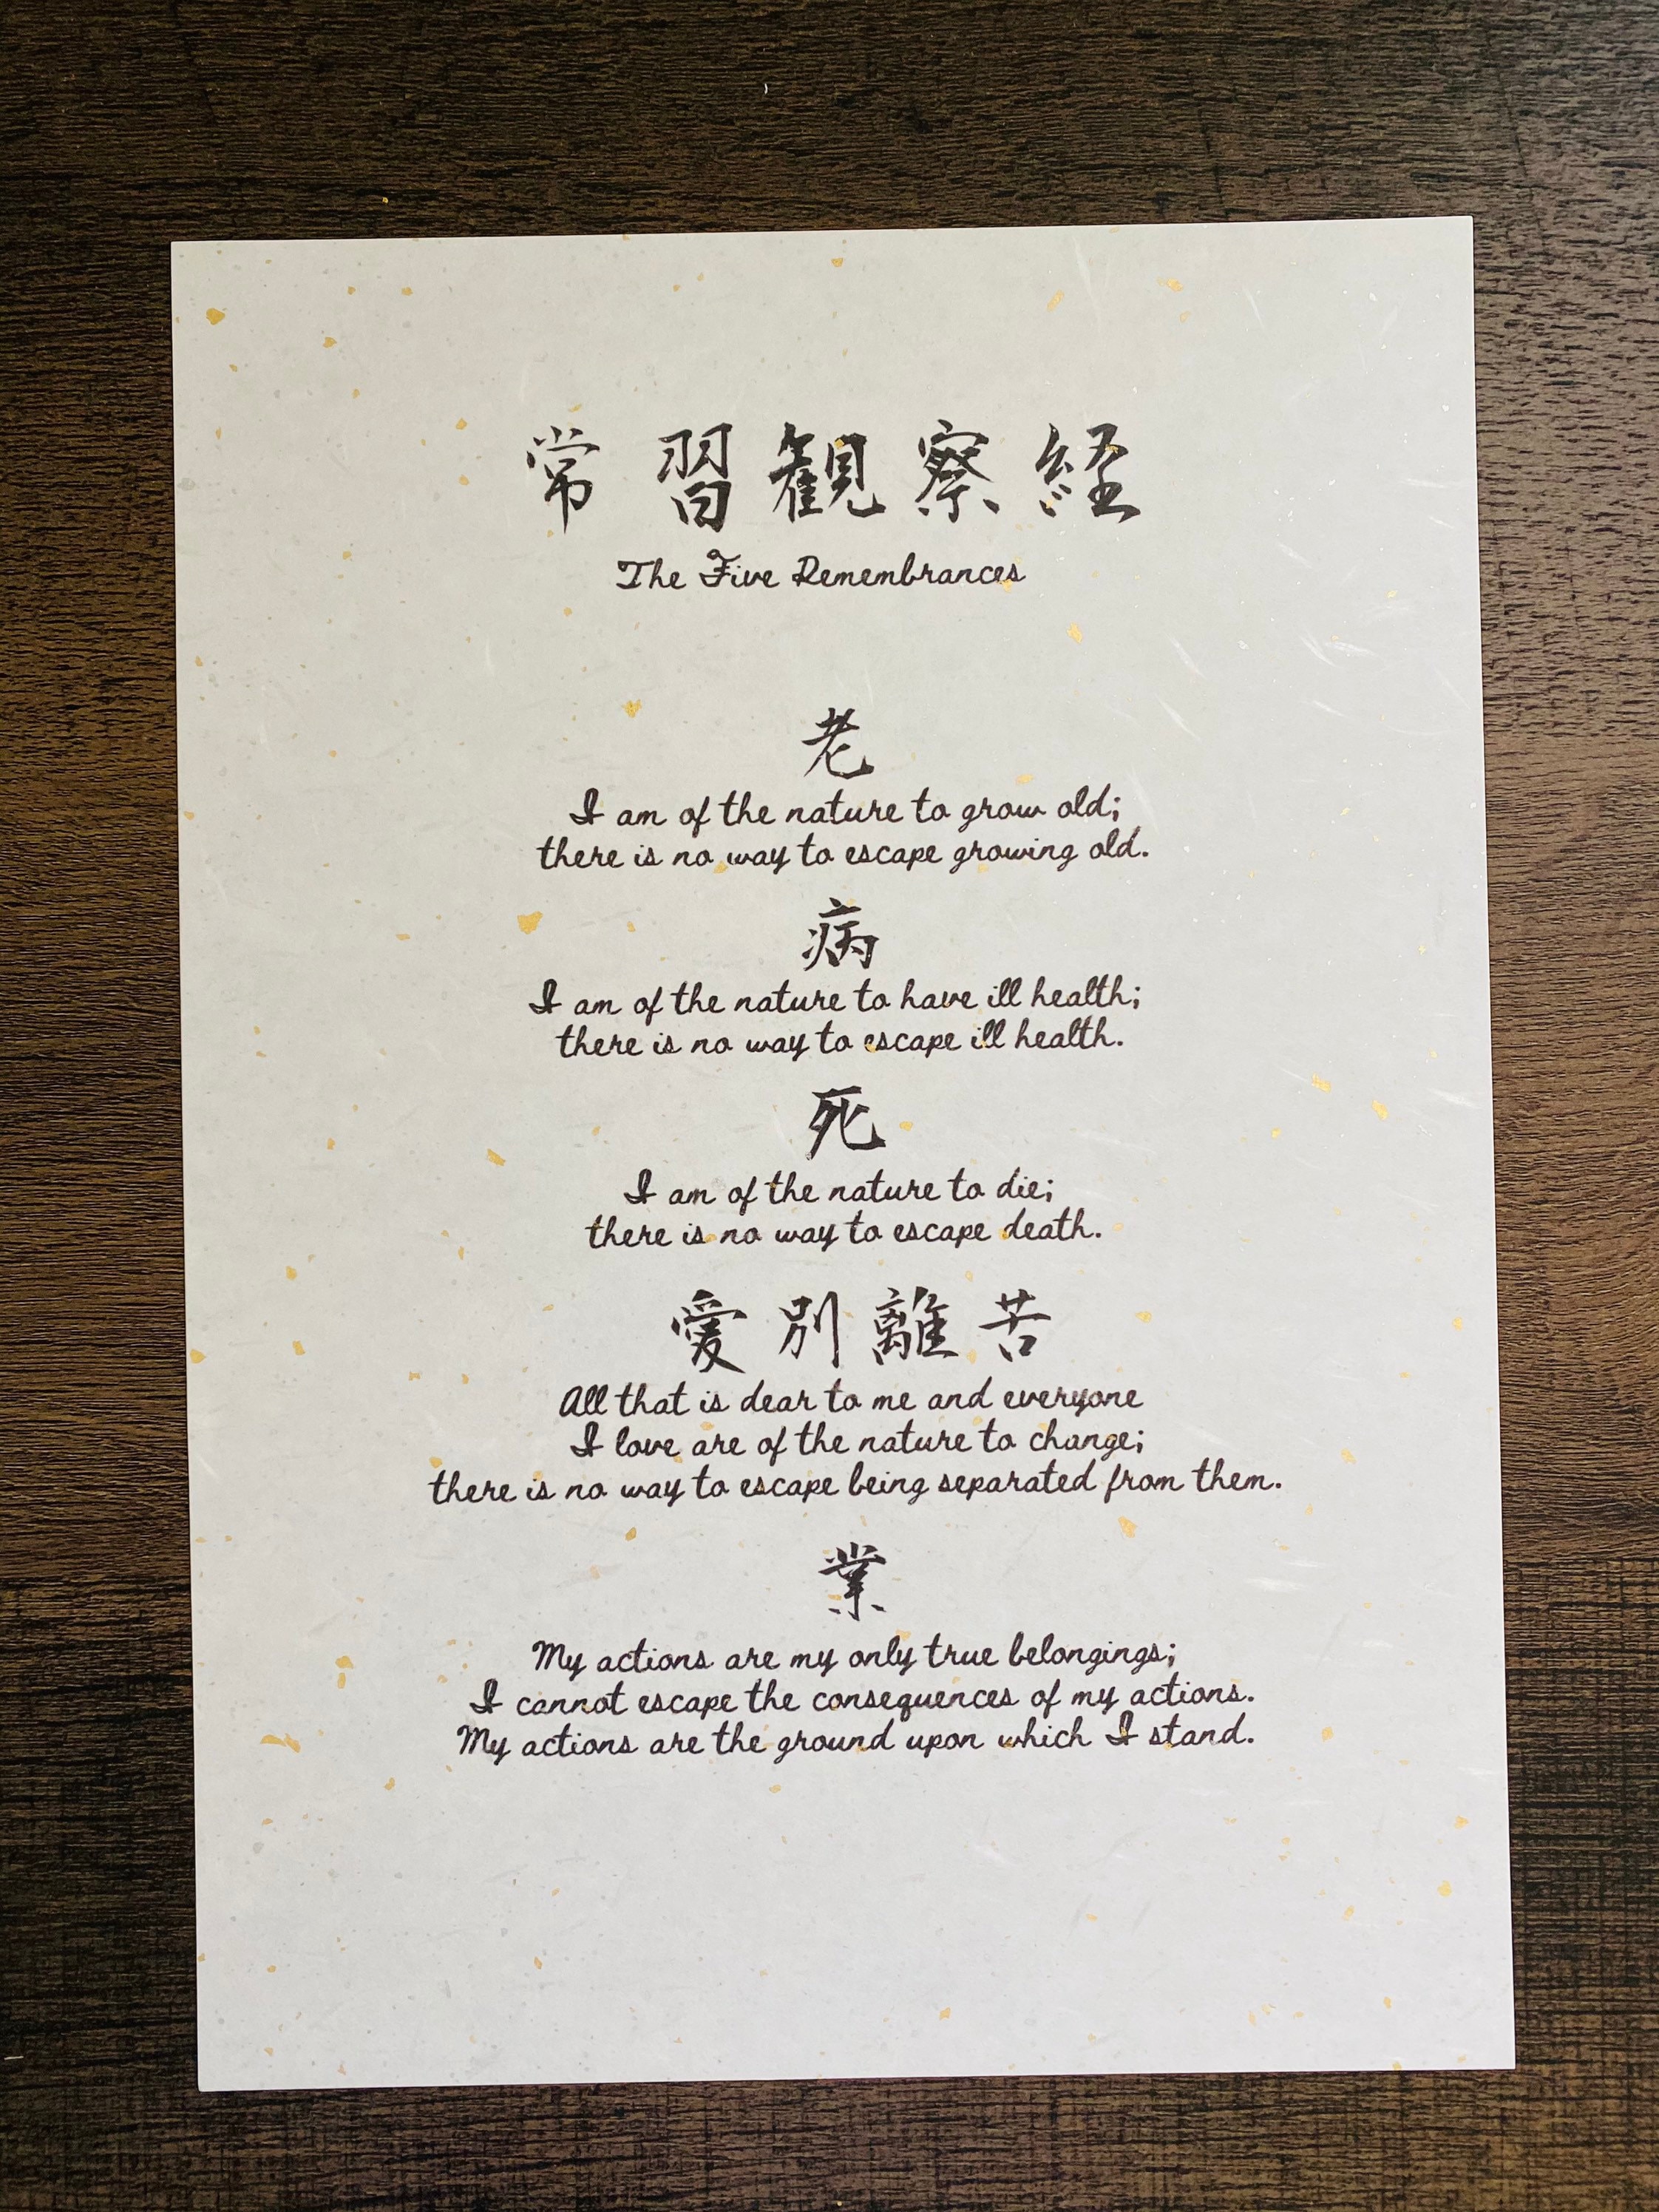 常習観察経
The Five Remembrances
老
I am of the nature to grow old;
there is no way to escape growing old.
病
I am of the nature to have ill health;
there is no way to escape ill health.
死
I am of the nature to die;
there is no way to escape death.
愛別離苦
All that is dear to me and everyone
I love are of the nature to change;
there is no way to escape being separated from them.
業
My actions are my only true belongings;
I cannot escape the consequences of my actions.
My actions are the ground upon which I stand.